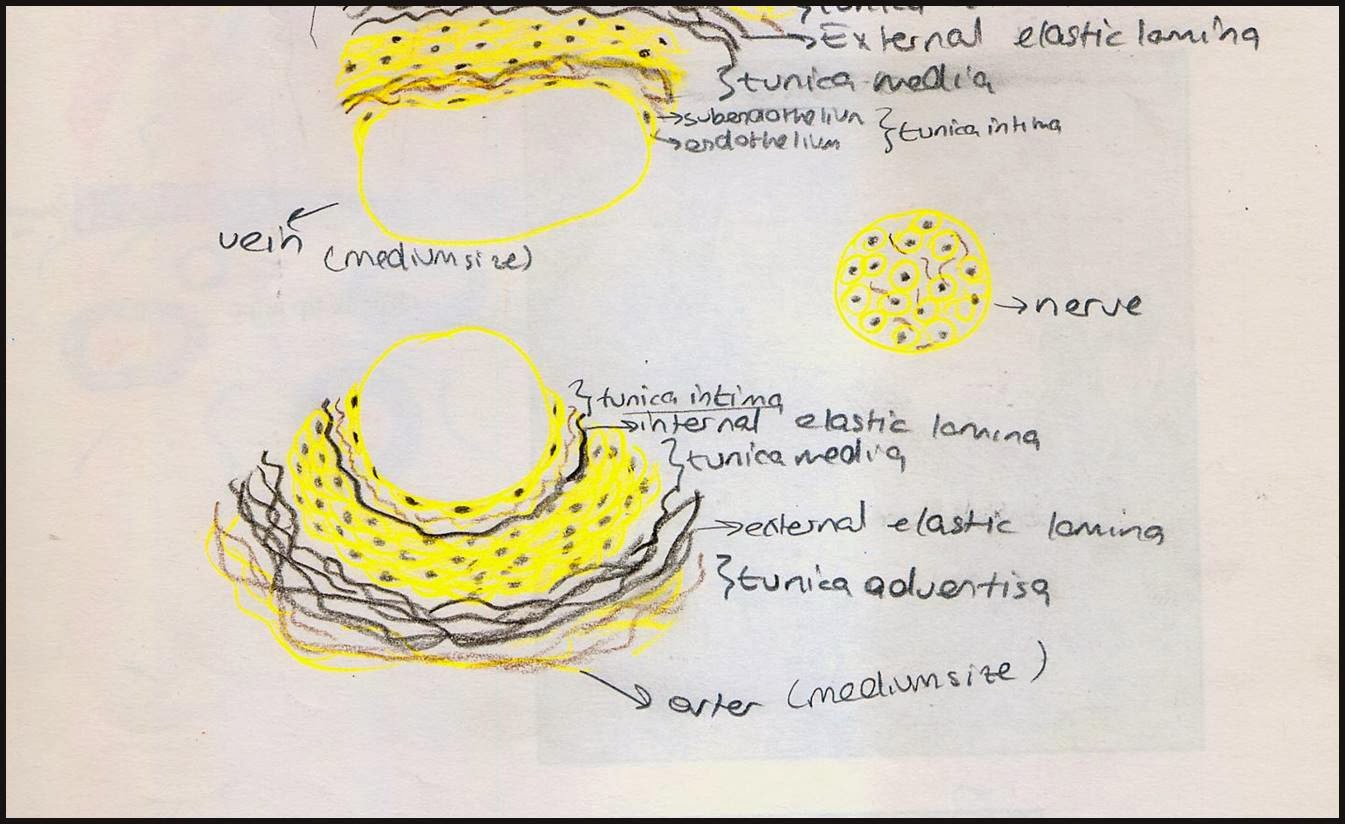 tunica
External elastic lamina
tunica media
subendothelium
endothelium
tunica intima
vein (medium size)
nerve
tunica intima
internal elastic lamina
tunica media
external elastic lamina
tunica adventisa
arter (medium size)